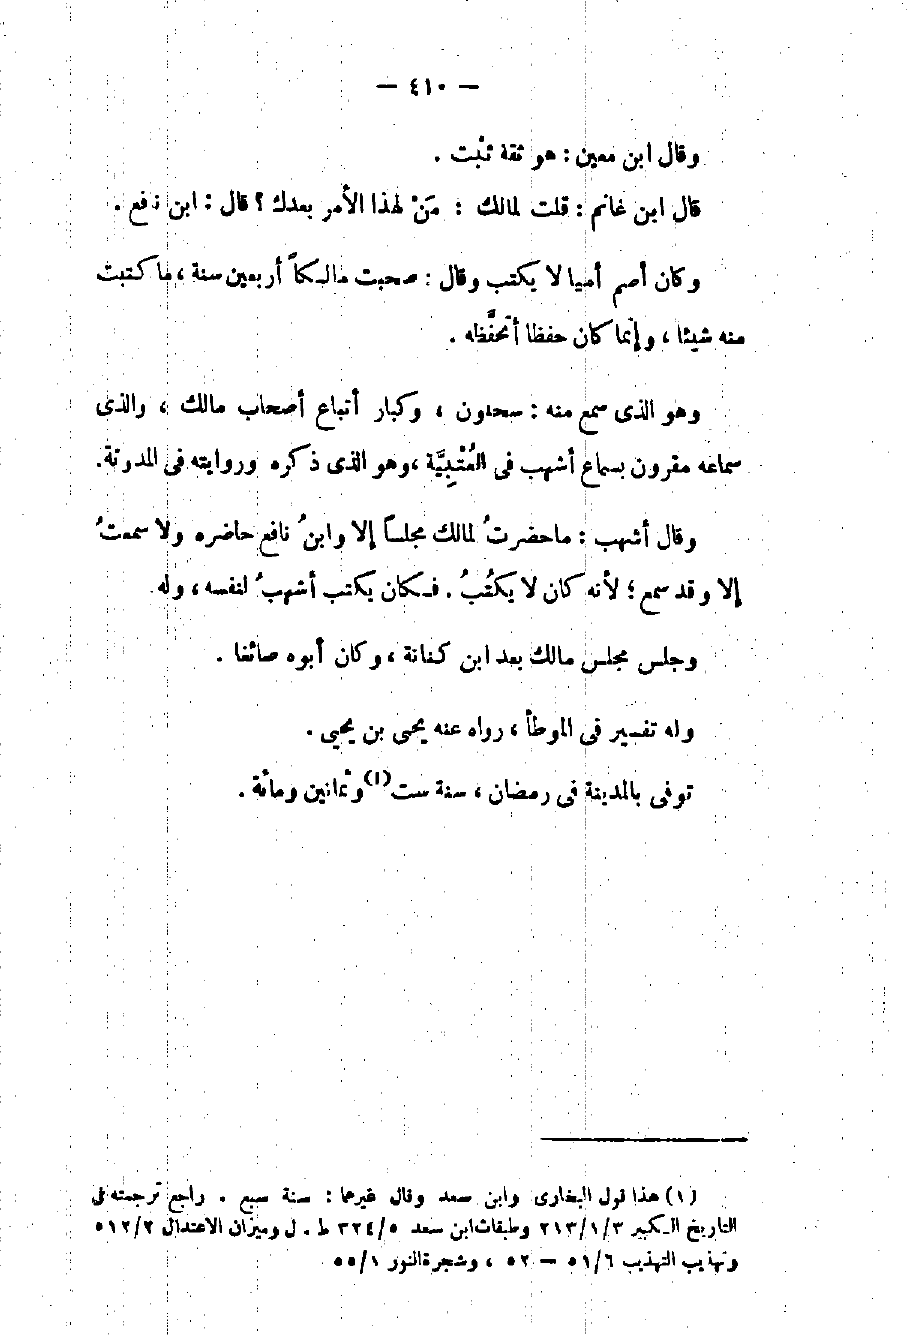 — ٤١٠ —
وقال ابن معين : هو ثقة ثبْت .
قال ابن غانم : قلت لمالك : مَنْ لهذا الأمر بعدك ؟ قال : ابن نافع .
وكان أصم أميا لا يكتب وقال : صحبت مالكاً أربعين سنة ، ما كتبت
منه شيئا ، وإنما كان حفظا أتحفَّظه .
وهو الذى سمع منه : سحنون ، وكبار أتباع أصحاب مالك ، والذى
سماعه مقرون بسماع أشهب فى العُتْبِيَّة ، وهو الذى ذكره وروايته فى المدونة.
وقال أشهب : ماحضرتُ لمالك مجلساً إلا وابنُ نافع حاضره ولا سمعتُ
إلا وقد سمع ؛ لأنه كان لا يكتُبُ . فكان يكتب أشهبُ لنفسه ، وله
وجلس مجلس مالك بعد ابن كنانة ، وكان أبوه صائغا .
وله تفسير فى الموطأ ، رواه عنه يحيى بن يحيى .
توفى بالمدينة فى رمضان ، سنة ست(١) وثمانين ومائة .
(١) هذا قول البخارى وابن سعد وقال غيرهما : سنة سبع . راجع ترجمته فى
التاريخ الكبير ٢١٣/١/٣ وطبقات ابن سعد ٣٢٤/٥ ط . ل وميزان الاعتدال ٥١٢/٢
وتهذيب التهذيب ٥١/٦ — ٥٢ ، وشجرة النور ٥٥/١